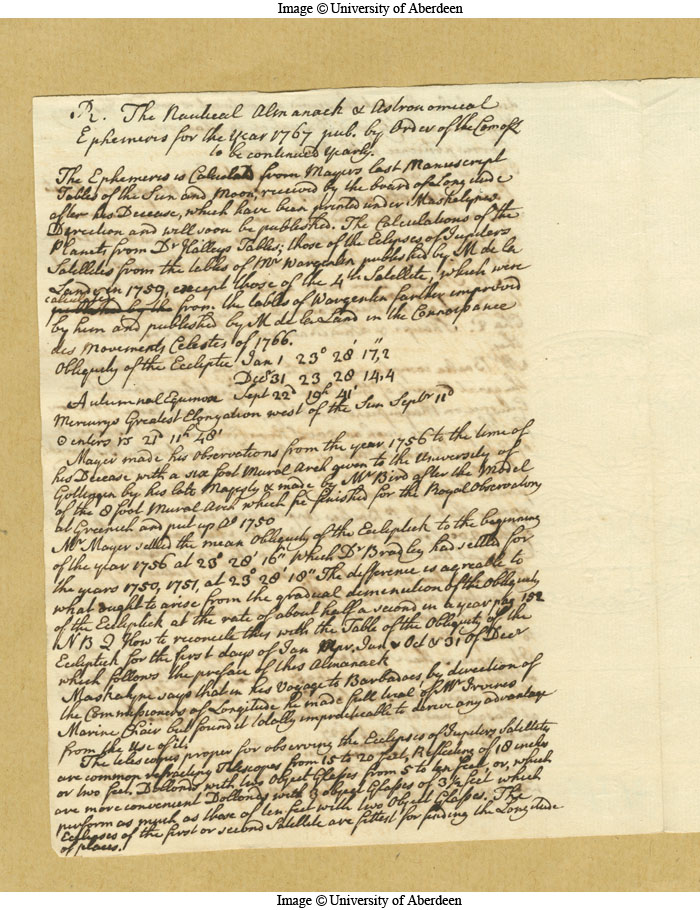 Image © University of Aberdeen
R. The Nautical Almanack & Astronomical
Ephemeris for the Year 1767 pub. by Order of the Comss
to be continued Yearly.
The Ephemeris is Calculated from Mayers last Manuscript
Tables of the Sun and Moon, received by the board of Longitude
after his Decease, which have been printed under Maskelynes
Direction and will soon be published. The Calculations of the
Planets from Dr Halleys Tables; those of the Eclipses of Jupiters
Satellites from the tables of Mr Wargentin published by M de la
Lande in 1759, except those of the 4th Satellite, which were
calculated
published by the from the tables of Wargentin farther improved
by him and published by M. de la Land in the Connoissance
des Movements Celestes of 1766.
Obliquity of the Ecliptic Jan 1 23° 28' 17,2"
Decr 31 23 28 14,4
Autumnal Equinox Sept 22d 19h 41'
Mercurys Greatest Elongation west of the Sun Septbr 11d
☉ enters 21d 11h 48'
Mayer made his observations from the year 1756 to the time of
his Decease with a six foot Mural Arch given to the University of
Gottingen by his late Majesty & made by Mr Bird after the Model
of the 8 foot Mural Arch which he finished for the Royal Observatory
at Greenich and put up Ao 1750
Mr Mayer settled the mean Obliquity of the Ecliptick to the beginning
of the year 1756 at 23° 28' 16" Which Dr Bradley had settled for
the years 1750, 1751, at 23° 28' 18" The difference is agreable to
what ought to arise from the gradual diminution of the Obliquity
of the Ecliptick at the rate of about half a second in a year pag 152
NB Q How to reconcile this with the Table of the Obliquity of the
Ecliptick for the first days of Jan Apr. Jun & Oct & 31 of Decr
which follows the preface of this Almanack
Maskalyne says that in his Voyage to Barbadoes, by direction of
the Commissioners of Longitude he made full trial of Mr Irvines
Marine Chair but found it totally impracticable to derive any advantage
from the Use of it.
The telescopes proper for observing the Eclipses of Jupiters Satellites
are common refracting Telescopes from 15 to 20 feet, Reflecting of 18 inches
or two feet. Dollonds with two Object Glasses from 5 to ten feet or, which
are more convenient Dollonds with 3 object Glasses of 3½ feet which
perform as much as those of ten feet with two Object Glasses. The
Eclipses of the first or second Satellite are fittest for finding the Longitude
of places.
Image © University of Aberdeen